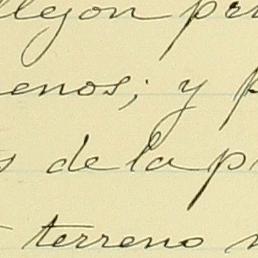 llejon pri
enos; y p
s de la p
terreno